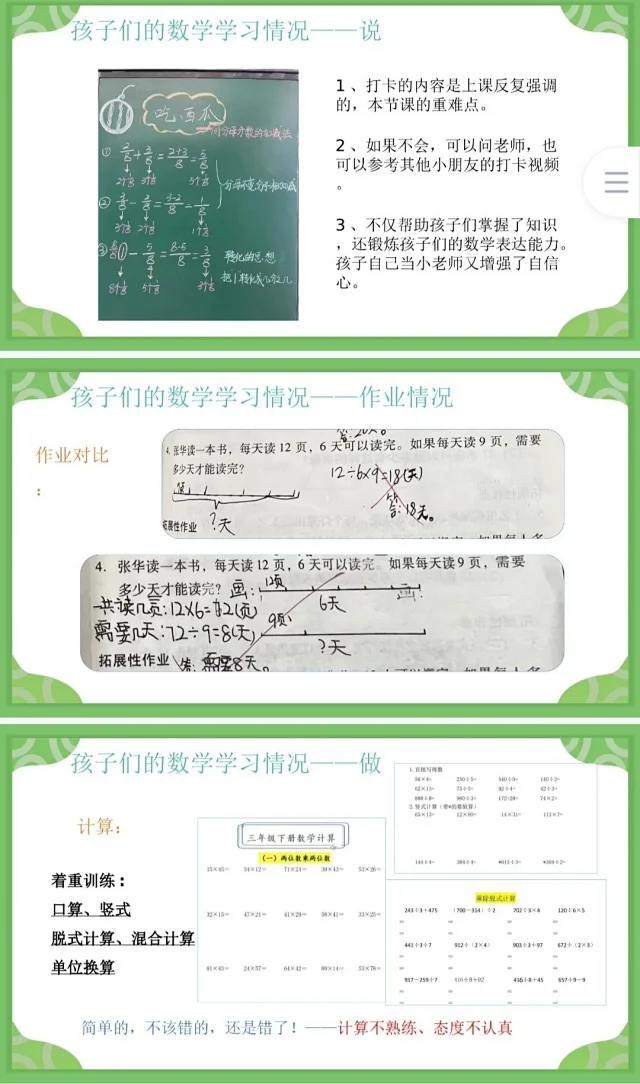 孩子们的数学学习情况——说
吃西瓜
同分母分数的加减法
① 2/8+3/8=2+3/8=5/8
2个1/8 3个1/8 5个1/8
分母不变分子相加减
② 3/8-2/8=3-2/8=1/8
3个1/8 2个1/8 1个1/8
5/8=8-5/8=3/8
转化的思想
8个1/8 5个1/8 3个1/8
把1转化成几分之几
1、打卡的内容是上课反复强调
的,本节课的重难点。
2、如果不会,可以问老师,也
可以参考其他小朋友的打卡视频
。
3、不仅帮助孩子们掌握了知识
,还锻炼孩子们的数学表达能力。
孩子自己当小老师又增强了自信
心。
孩子们的数学学习情况——作业情况
作业对比
:
4.张华读一本书,每天读12页,6天可以读完。如果每天读9页,需要
多少天才能读完?
12÷6×9=18(天)
答:18天。
?天
拓展性作业
4.张华读一本书,每天读12页,6天可以读完。如果每天读9页,需要
多少天才能读完?画:12页
一共读几页:12×6=72(页)
6天
需要几天:72÷9=8(天)
9页
?天
拓展性作业
答:需要8天。
孩子们的数学学习情况——做
计算:
着重训练:
口算、竖式
脱式计算、混合计算
单位换算
三年级下册数学计算
(一)两位数乘两位数
15×45= 34×12= 71×24= 39×43= 53×26=
32×15= 47×21= 41×29= 58×41= 33×25=
91×43= 24×57= 64×42= 89×14= 53×78=
1.直接写得数
2.竖式计算(带*的要验算)
乘除脱式计算
243÷3+475 (700-314)÷2 702÷3×4 120÷6×5
441÷3÷7 912÷(2×4) 903÷3+97 672÷(2×3)
957-259÷7 416÷8+92 416÷8+45 657÷9-9
简单的,不该错的,还是错了!——计算不熟练、态度不认真